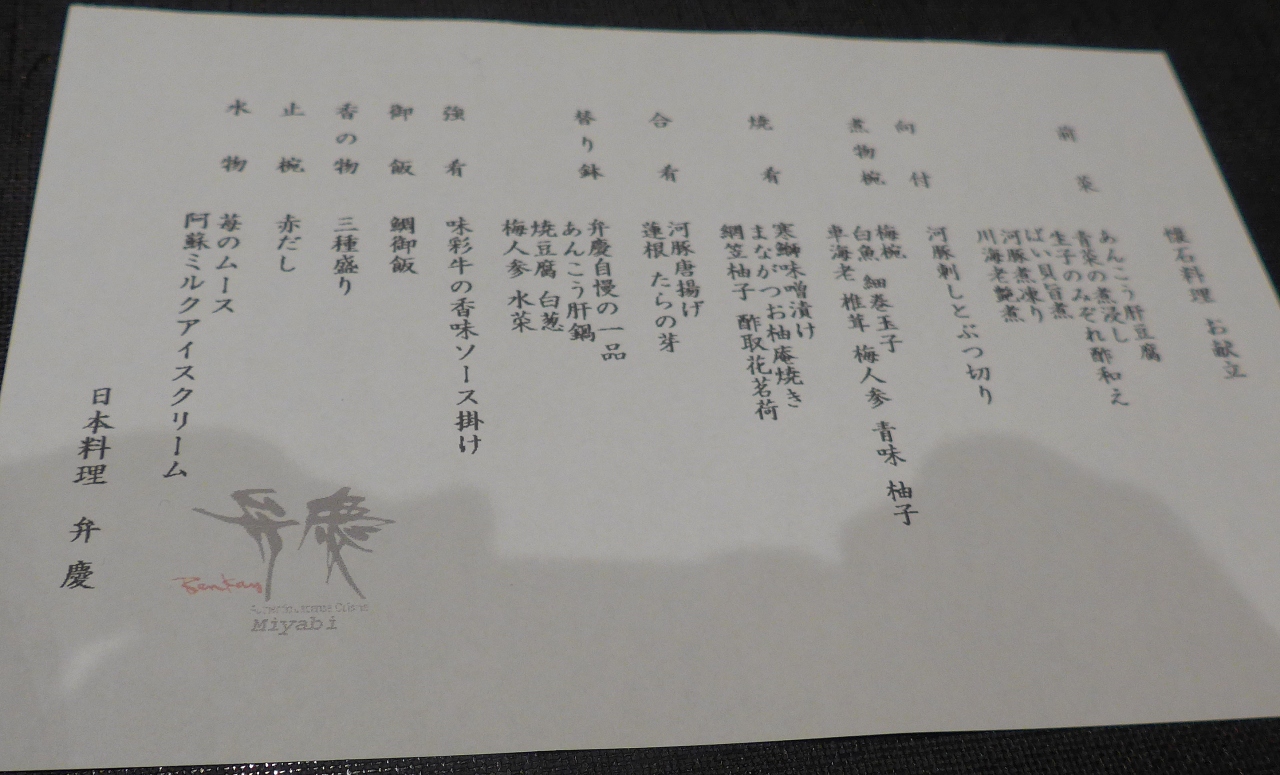 懐石料理 お献立
前菜
あんこう肝豆腐
青菜の煮浸し
生子のみぞれ酢和え
ばい貝旨煮
河豚煮凍り
川海老艶煮
向付
河豚刺しとぶつ切り
煮物椀
梅椀
白魚 細巻玉子
車海老 椎茸 梅人参 青味 柚子
焼肴
寒鰤味噌漬け
まながつお柚庵焼き
網笠柚子 酢取花茗荷
合肴
河豚唐揚げ
蓮根 たらの芽
替り鉢
弁慶自慢の一品
あんこう肝鍋
焼豆腐 白葱
梅人参 水菜
強肴
味彩牛の香味ソース掛け
御飯
鯛御飯
香の物
三種盛り
止椀
赤だし
水物
苺のムース
阿蘇ミルクアイスクリーム
日本料理 弁慶
弁慶
Benkay
Miyabi